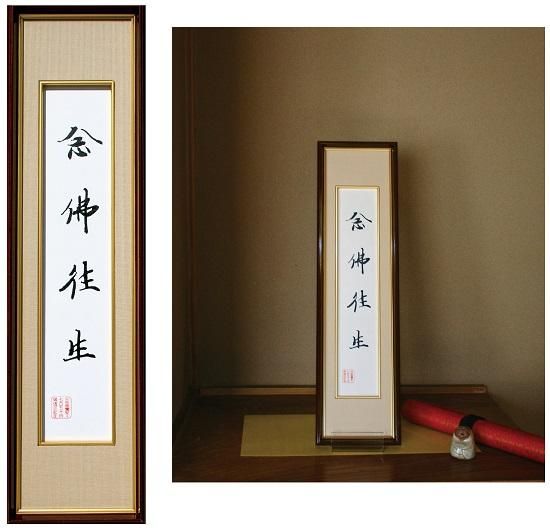 念佛往生
念佛往生